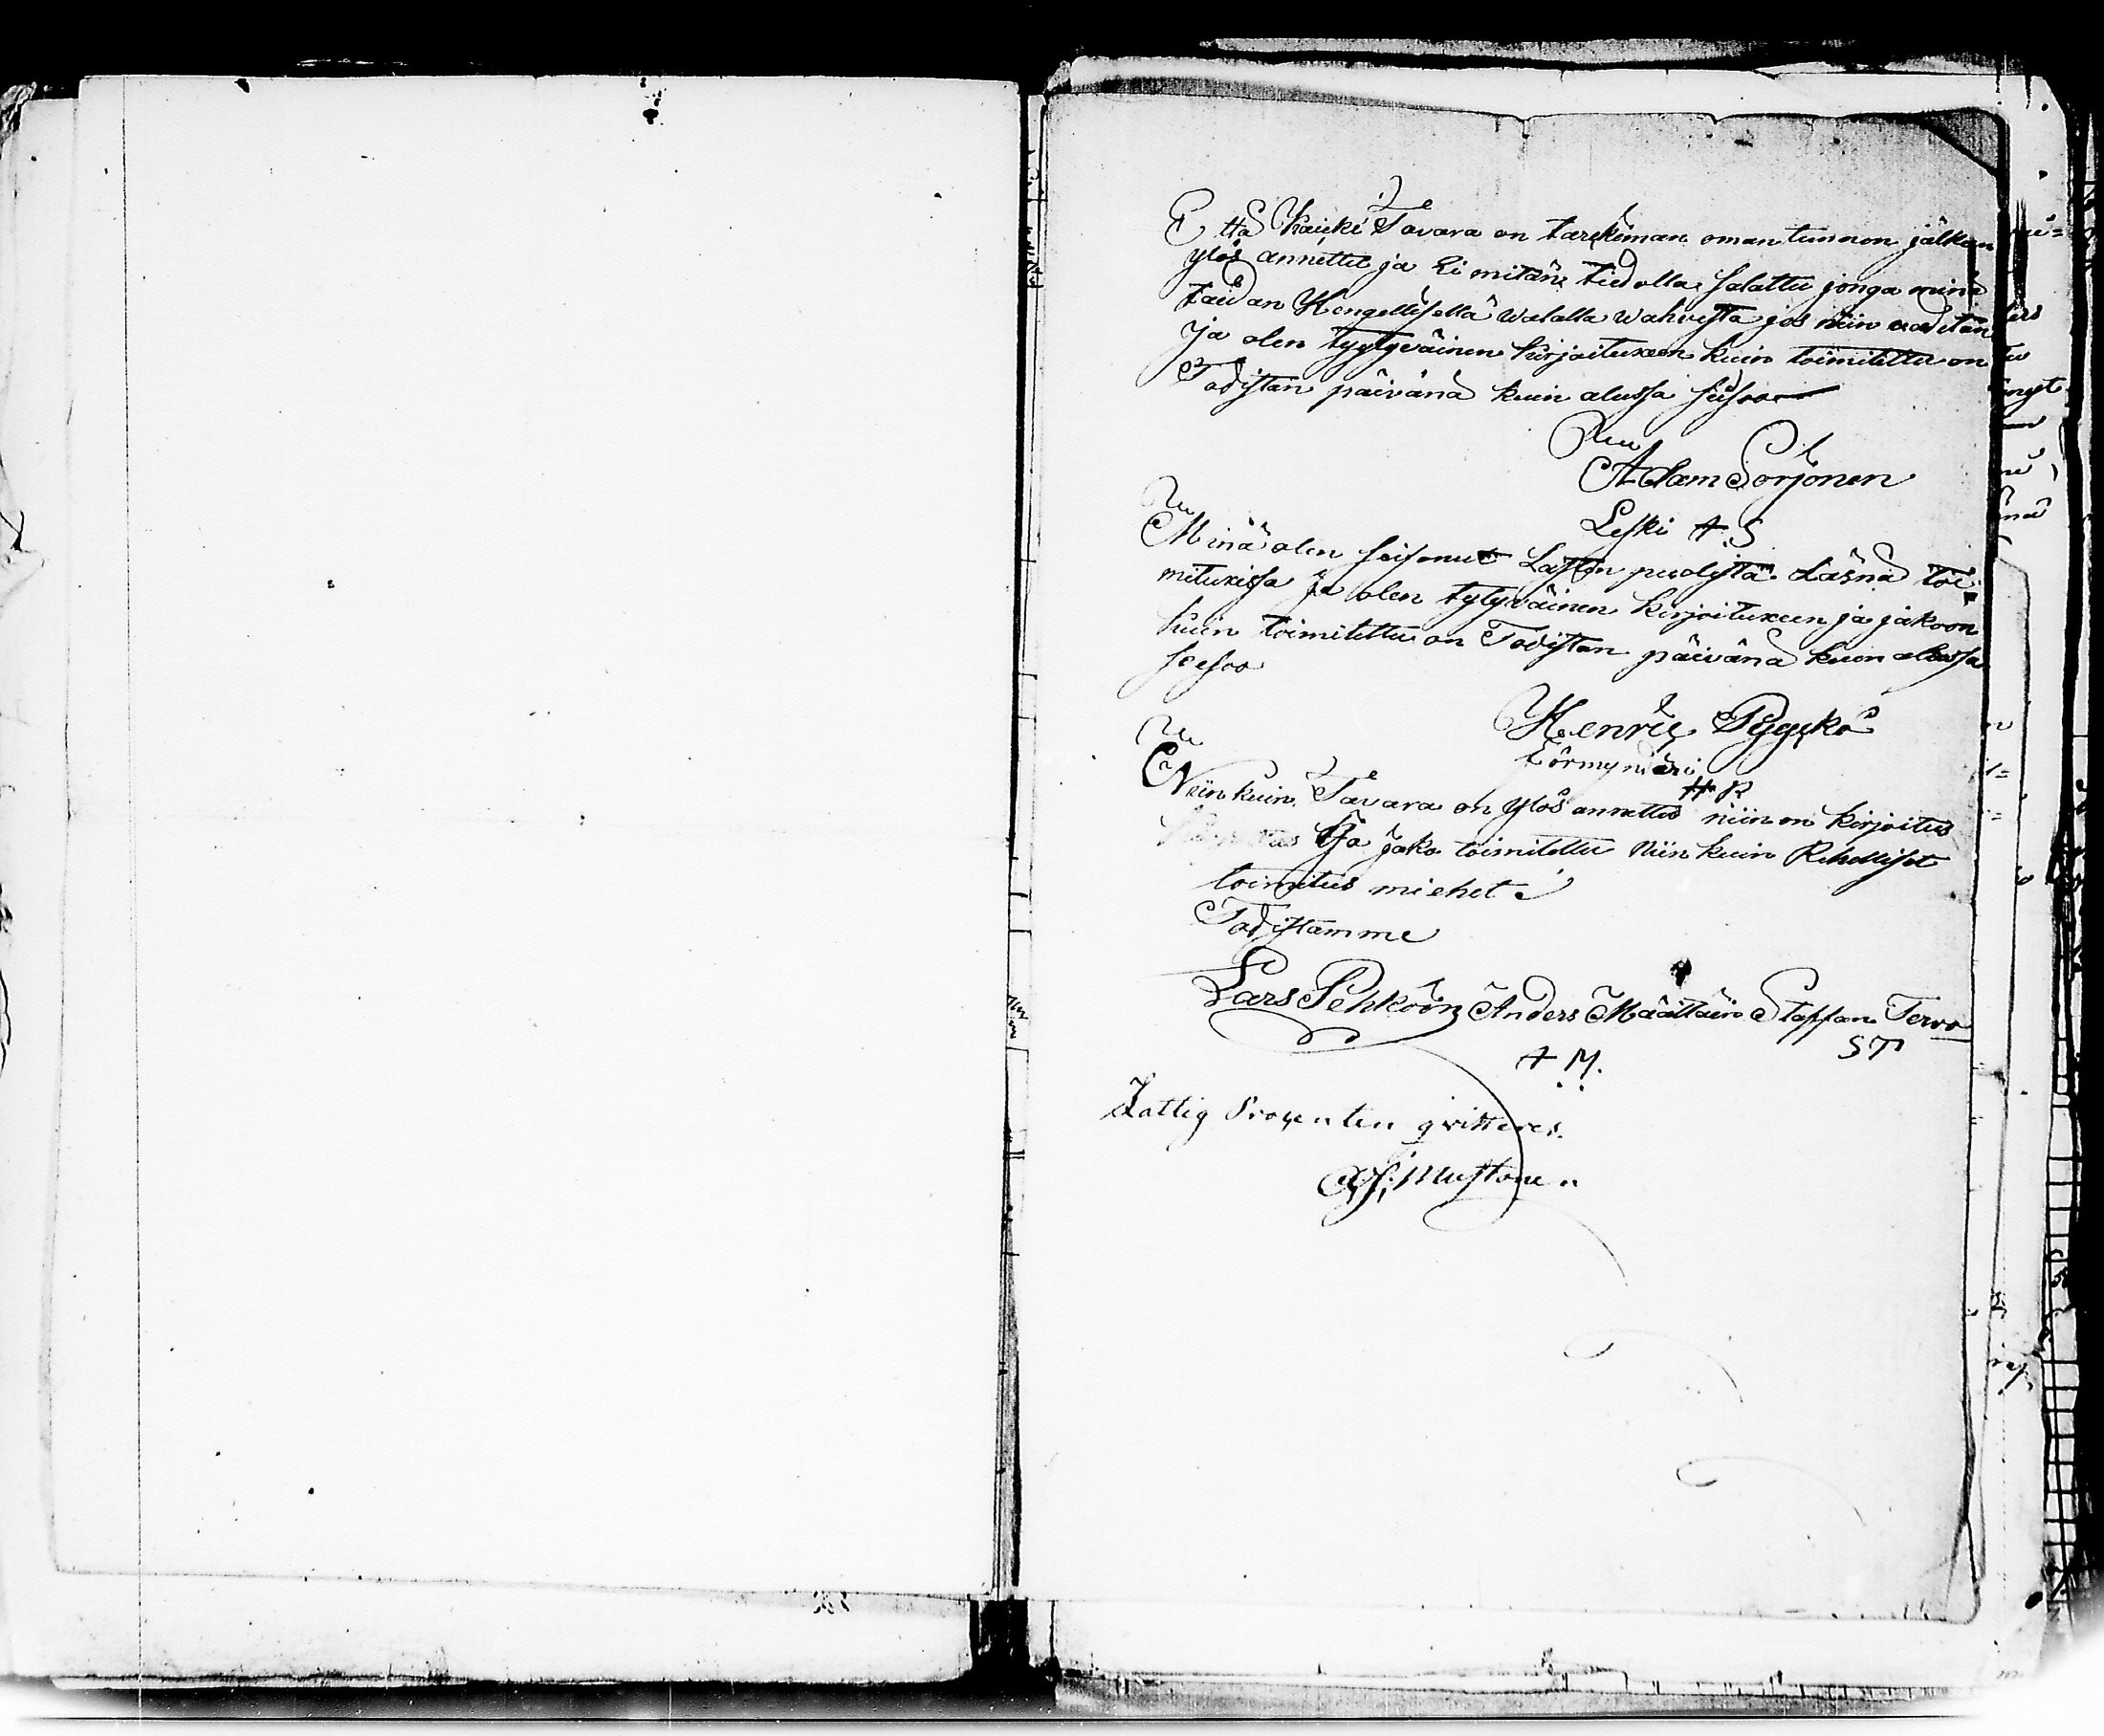 Että Kaicki Tavara on tarckiman oman tunnon jälken
ylös annettu ja Ei mitän tiedolla salattu jonga minä
taidan Hengellisellä walalla wahvista jos niin vaditan
Ja olen tyytyväinen kirjoituxeen kuin toimitettu on
Todistan päivänä kuin alussa seisoo
Adam Sorjonen
Leski A S
Minä olen seisonut Lasten puolesta Läsnä toi=
mituxissa Ja olen tytyväinen kirjoituxeen ja jakoon
kuin toimitettu on Todistan päivänä kuin alussa
seisoo
Henric Pyyckö
Förmyndäri
H P
Niin kuin Tavara on ylös annettu niin on kirjoitus
Ja Jako toimitettu Niin kuin Rehelliset
toimitus miehet
Todistamme
Lars Pehkoin Anders Määttäin Staffan Tervo
A M. S T
Fattig Procenten qvitteres.
Mustonen